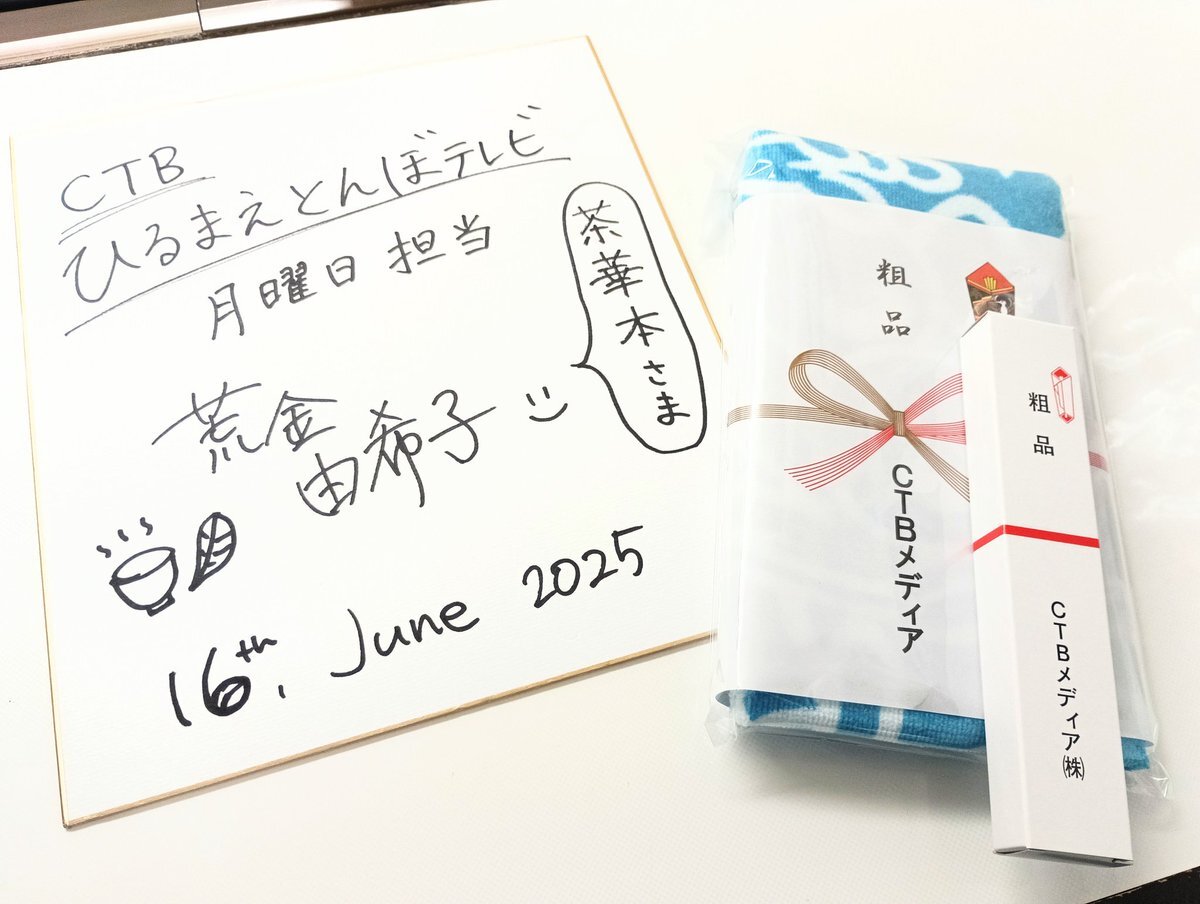 CTB
ひるまえとんぼテレビ
月曜日 担当
荒金
由希子
茶華本さま
16th, June 2025
粗品
CTBメディア
粗品
CTBメディア㈱